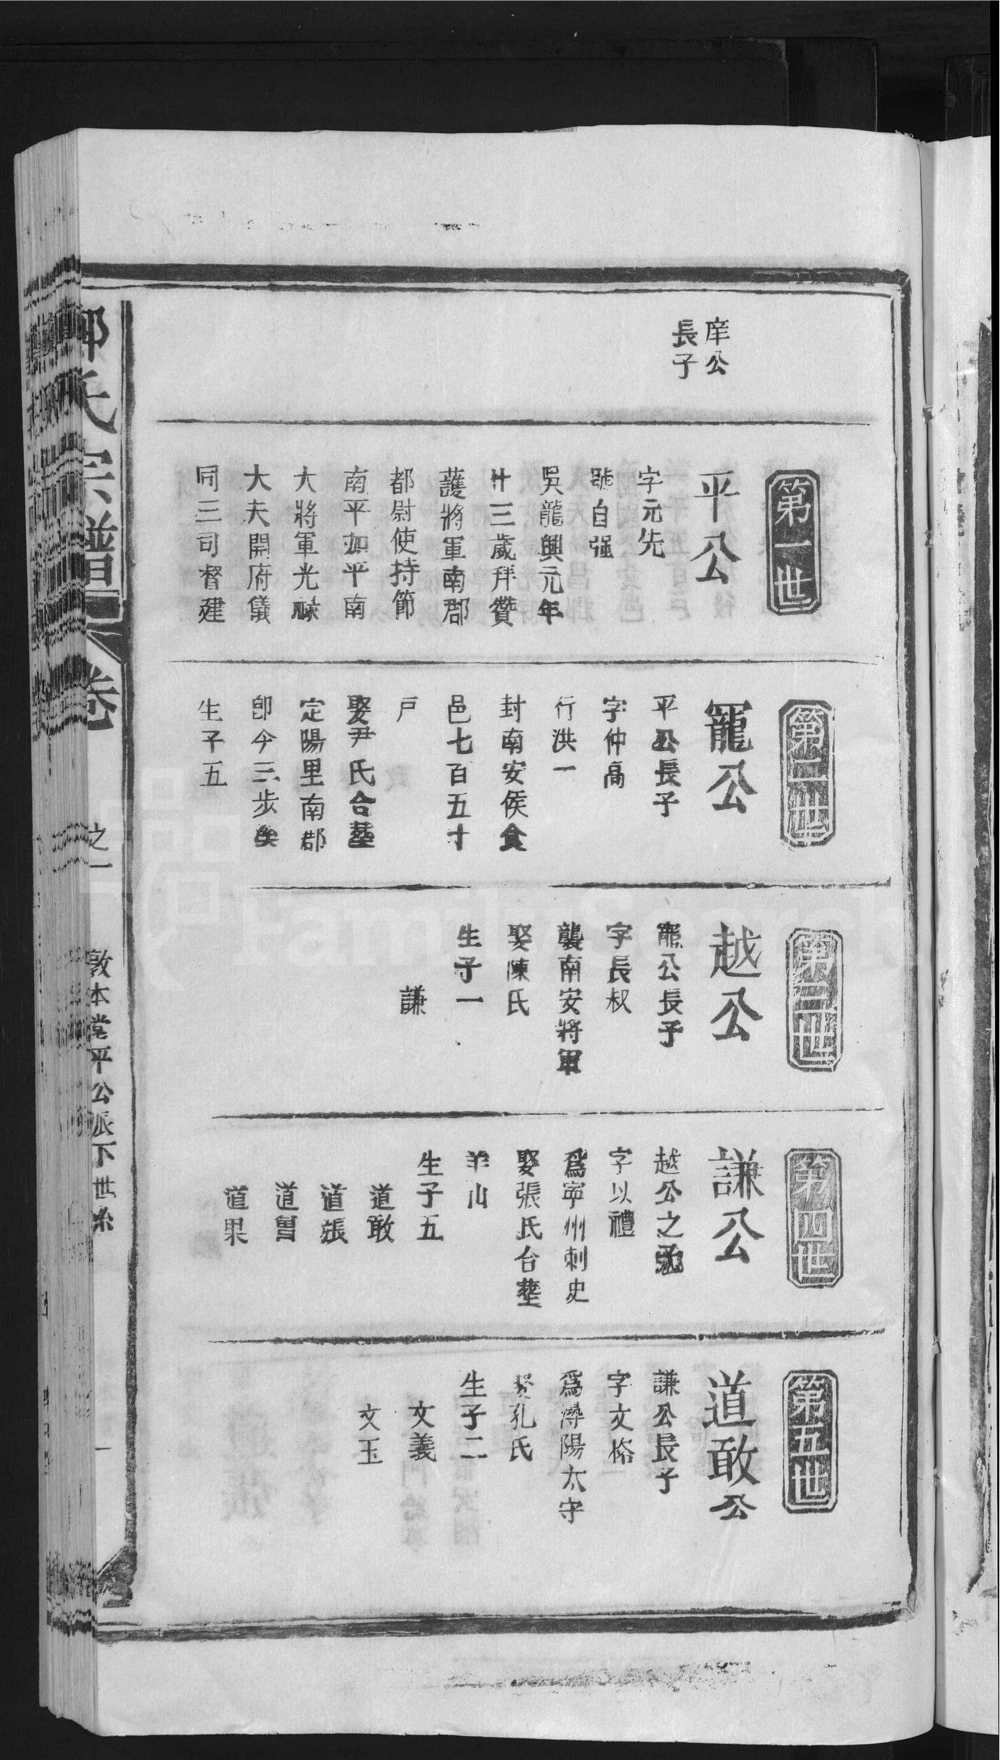 庠公
長子
第一世
平公
字元先
號自强
吳龍興元年
廿三歲拜贊
護將軍南郡
都尉使持節
南平加平南
大將軍光祿
大夫開府儀
同三司督建
第二世
寵公
平公長子
字仲高
行洪一
封南安侯食
邑七百五十
戶
娶尹氏合塟
定陽里南郡
卽今三步矣
生子五
第三世
越公
寵公長子
字長叔
襲南安將軍
娶陳氏
生子一
謙
第四世
謙公
越公之子
字以禮
爲寧州刺史
娶張氏合塟
羊山
生子五
道敢
道張
道曾
道果
第五世
道敢公
謙公長子
字文格
爲潯陽太守
娶孔氏
生子二
文義
文玉
氏宗譜
卷
之一
敦本堂平公派下世系
一